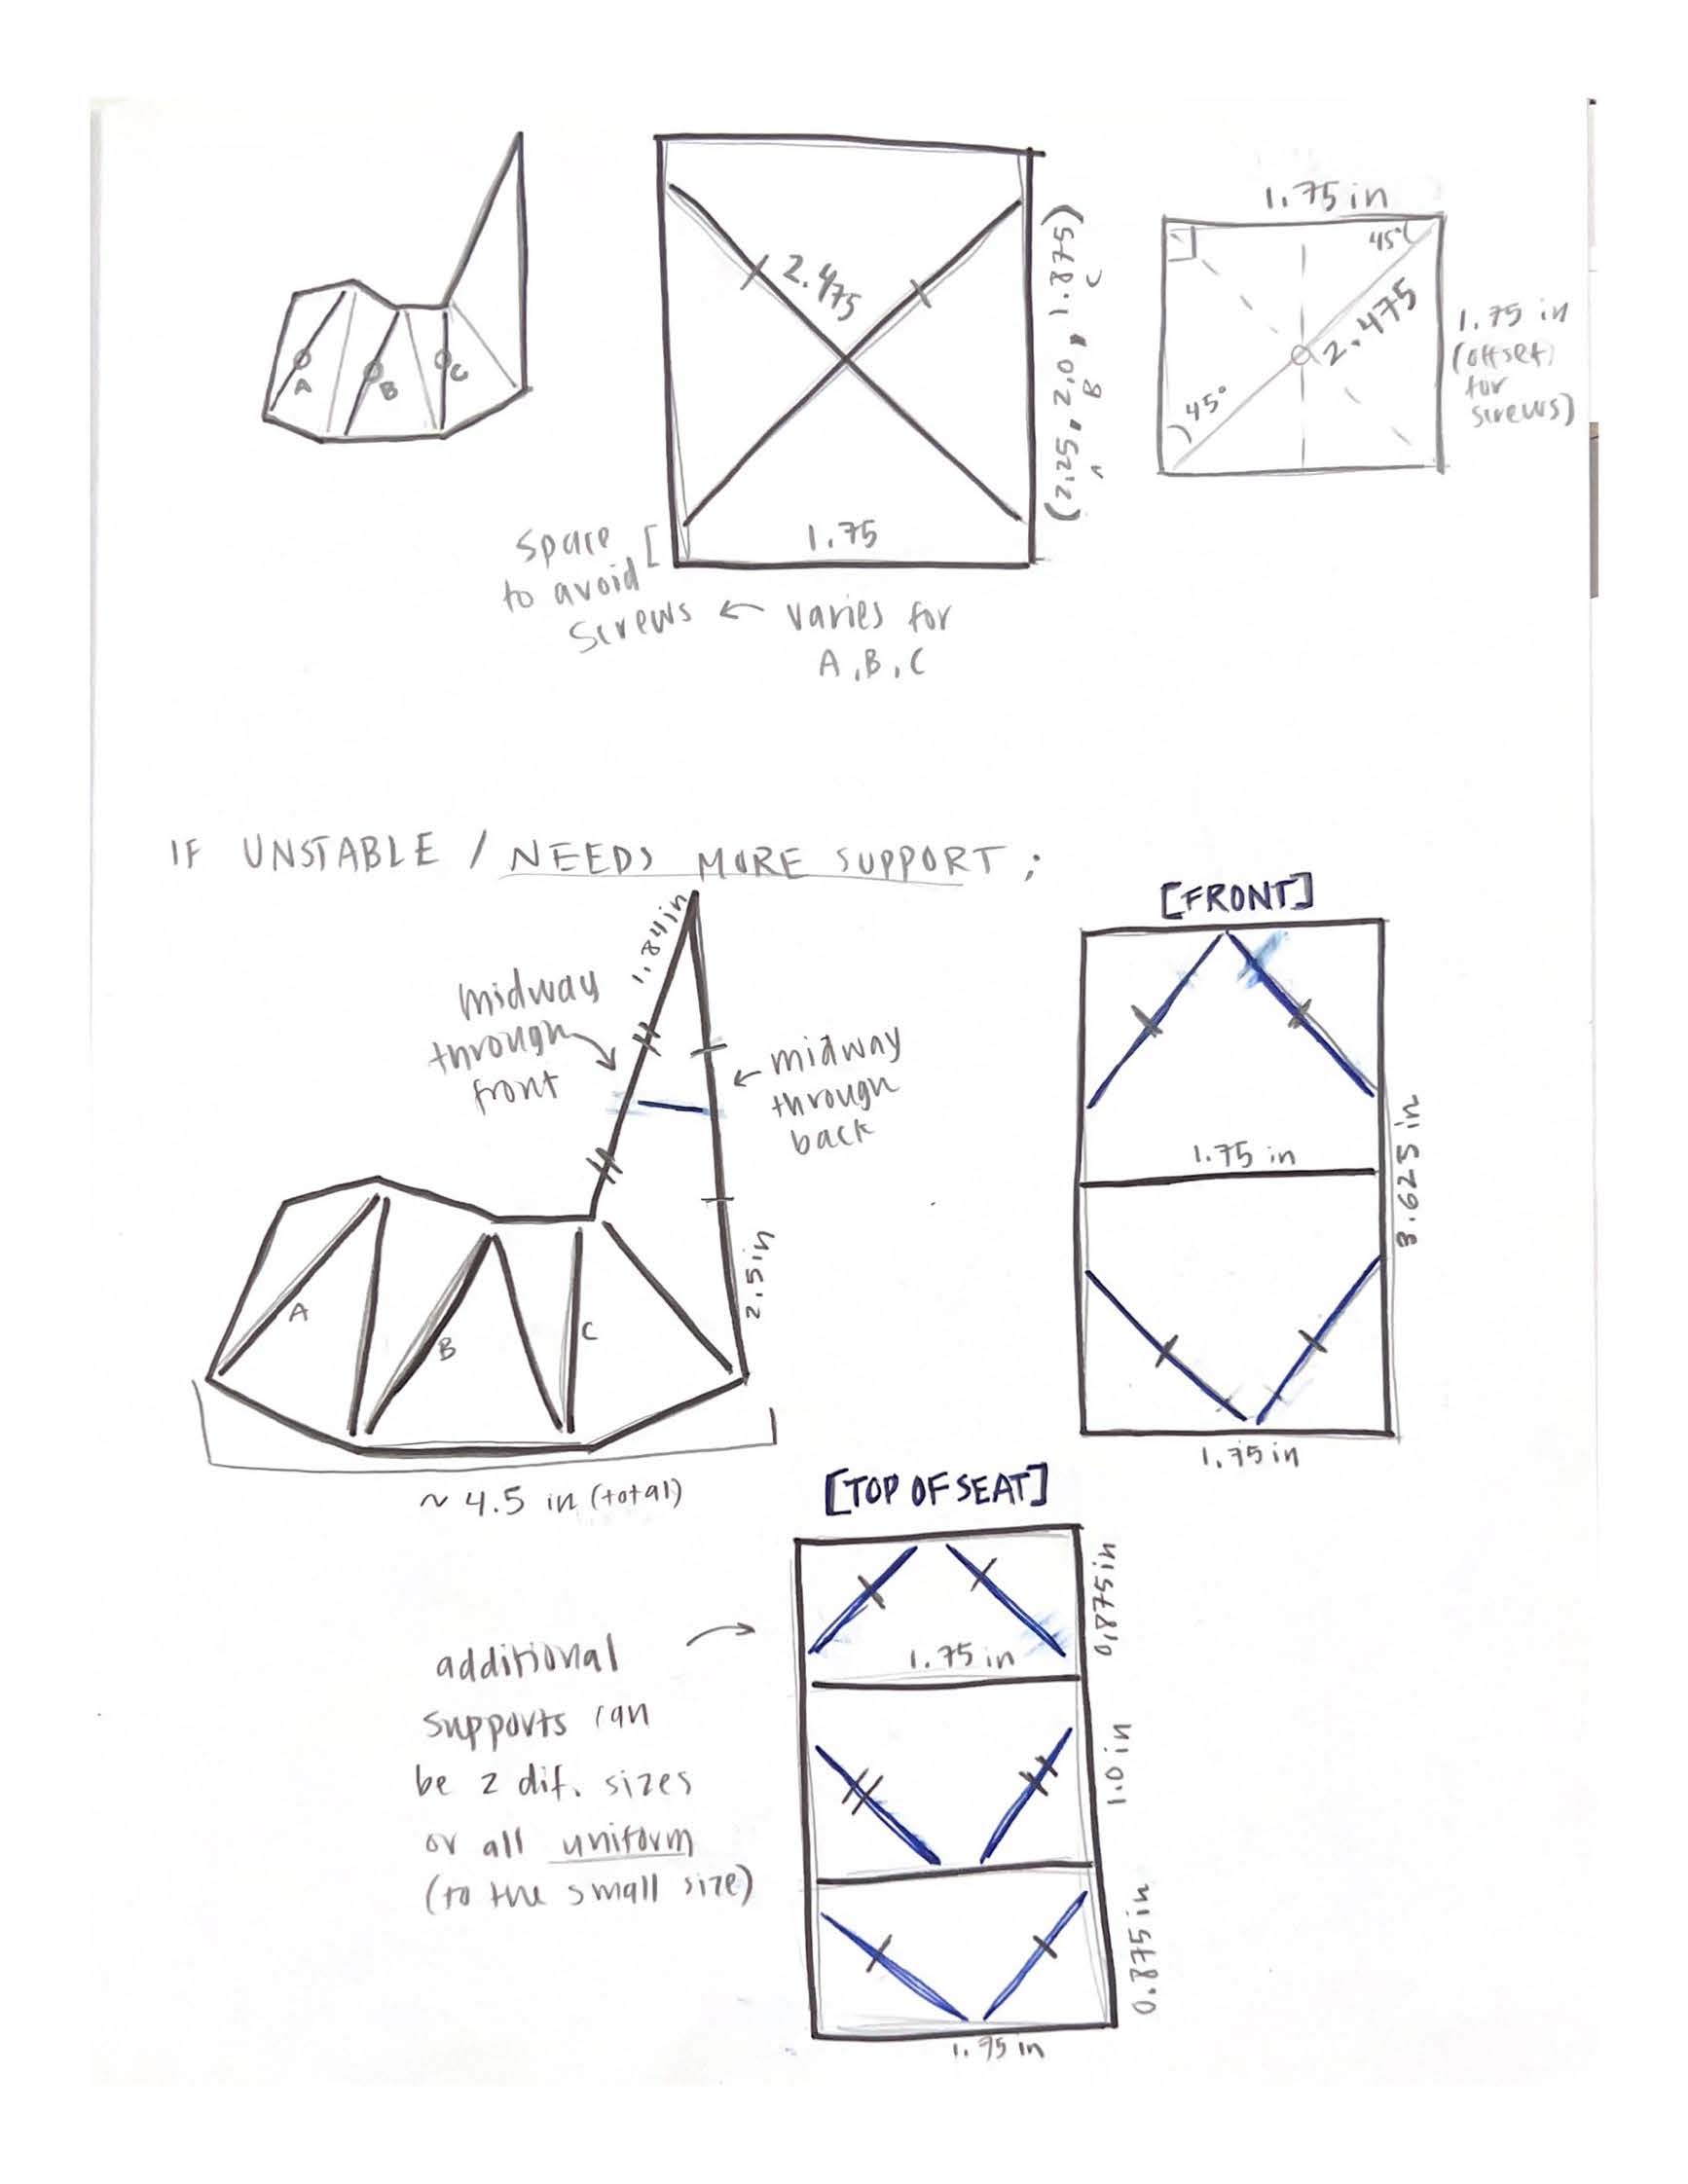 A
B
C
2.475
1.75
(2.25, 2.0, 1.875)
A B C
space
to avoid
screws ← varies for
A, B, C
1.75 in
45°
45°
2.475
1.75 in
(offset)
for
screws)
IF UNSTABLE / NEEDS MORE SUPPORT ;
1.84in
midway
through
front
midway
through
back
A
B
C
2.5in
~ 4.5 in (total)
[FRONT]
1.75 in
3.625 in
1.75 in
[TOP OF SEAT]
additional
supports can
be 2 dif. sizes
or all uniform
(to the small size)
0.875in
1.75 in
1.0 in
0.875in
1.75 in